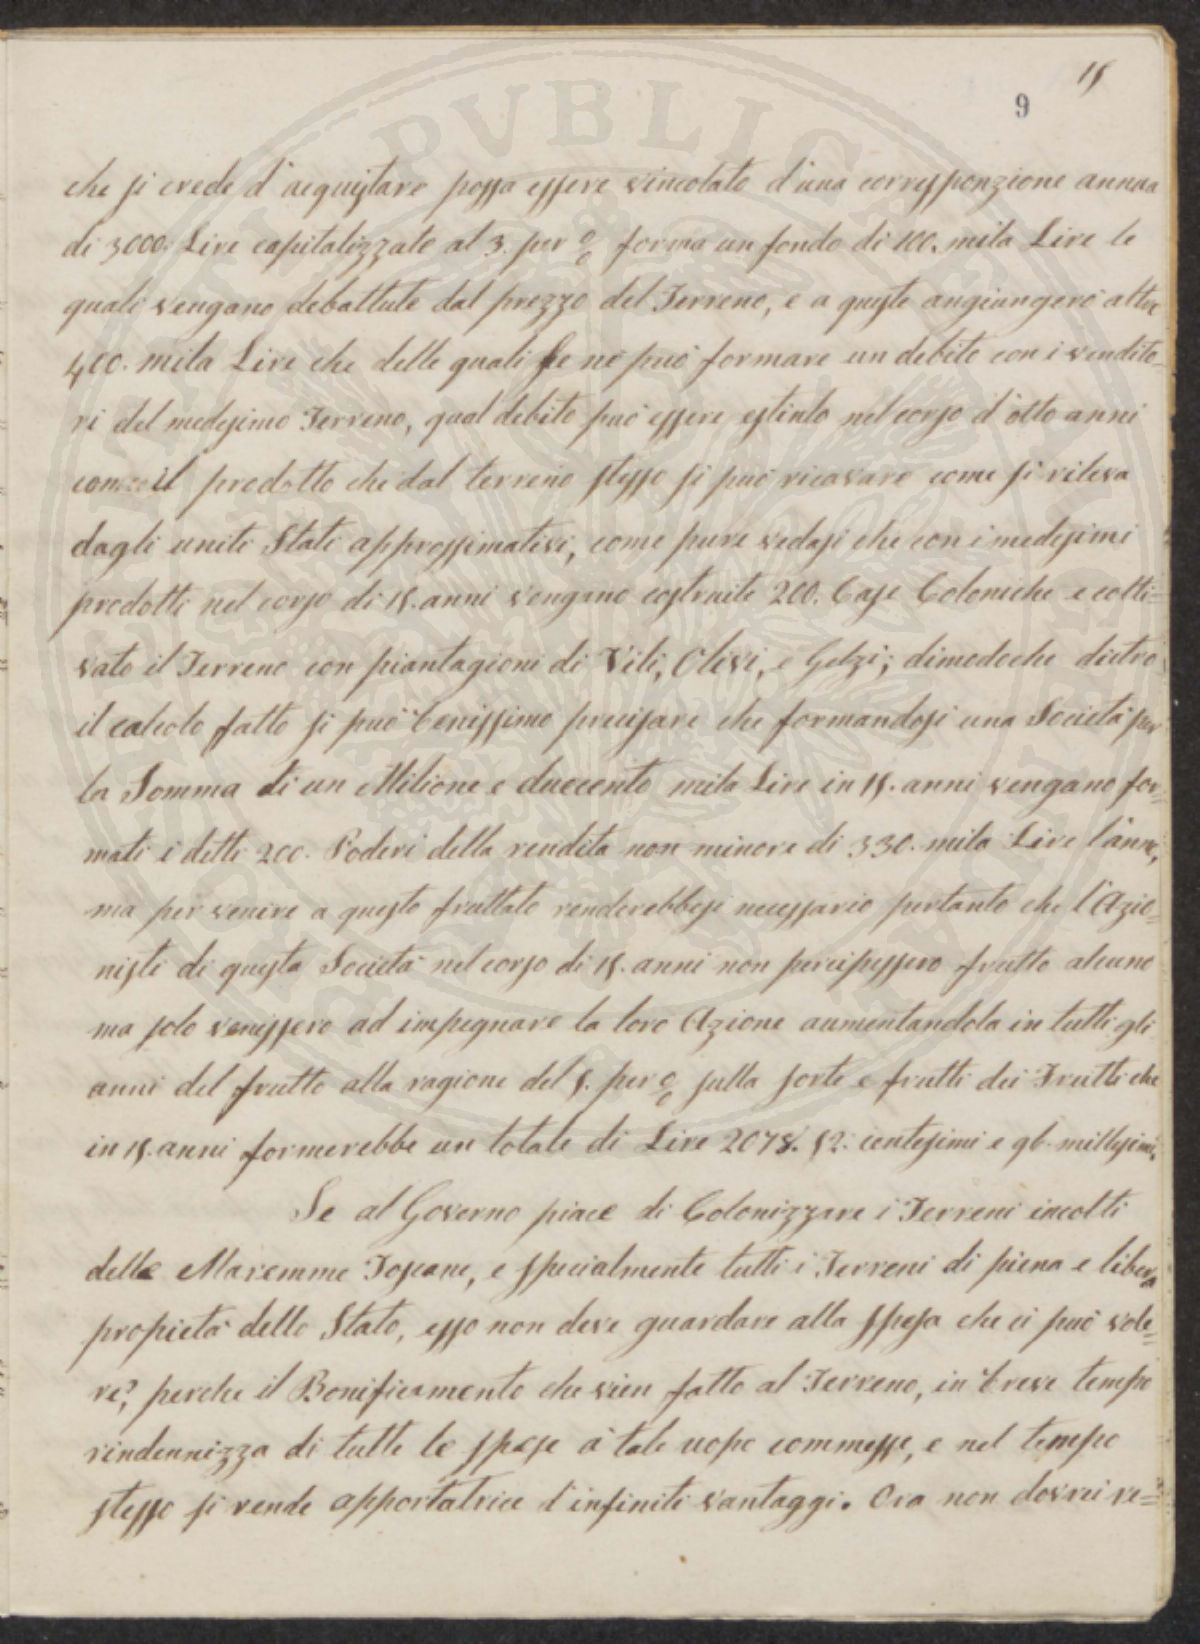 15
9
che si crede d'acquistare possa essere vincolato d'una corresponzione annua
di 3000. Lire capitalizzate al 3. per % forma un fondo di 100. mila Lire le
quali vengano debattute dal prezzo del Terreno, e a queste angiungerò altre
400. mila Lire che delle quali se ne può formare un debito con i vendito=
ri del medesimo Terreno, qual debito può essere estinto nel corso d'otto anni
con il prodotto che dal terreno stesso si può ricavare come si rileva
dagli uniti Stati approssimativi, come pure vedasi che con i medesimi
prodotti nel corso di 15. anni vengano costruite 200. Case Coloniche e colti=
vato il Terreno con piantagioni di Viti, Olivi, e Gelzi; dimodoche dietro
il calcolo fatto si può benissimo precisare che formandosi una Società per
la Somma di un Milione e duecento mila Lire in 15. anni vengano for=
mati i detti 200. Poderi della rendita non minore di 330. mila Lire l'anno,
ma per venire a questo fruttato renderebbesi necessario pertanto che l'Azio=
nisti di questa Società nel corso di 15. anni non percipessero frutto alcuno
ma solo venissero ad impegnare la loro Azione aumentandola in tutti gli
anni del frutto alla ragione del 5. per % sulla sorte e frutti dei Frutti che
in 15. anni formerebbe un totale di Lire 2078. 52. centesimi e 96. millesimi.
Se al Governo piace di Colonizzare i Terreni incolti
delle Maremme Toscane, e specialmente tutti i Terreni di piena e libera
propietà dello Stato, esso non deve guardare alla spesa che ci può vole=
re? perche il Bonificamento che vien fatto al Terreno, in breve tempo
rindennizza di tutte le spese a tale uopo commesse, e nel tempo
stesso si rende apportatrice d'infiniti vantaggi. Ora non dovrei re=
PVBLIC